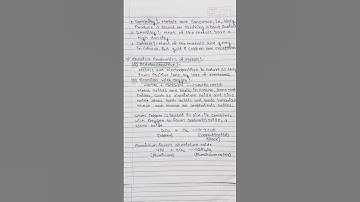 Sonority: Metals are Sonorous, ie. they
Produce a sound on striking a hard surface
Density: Most of the metals have a
high density.
Colour: Most of the metals are grey
in Colour, but gold & Copper are
Chemical Properties of Metals:
(i) Electropositive:
Metals are electropositive in nature as they
form Positive ions by loss of electrons.
(ii) Reaction with Oxygen:
Metal + Oxygen → Metal oxide
Metal oxides are basic in nature. Some metal
Oxides, such as aluminium oxide and zinc
oxide shows both acidic and basic
These are known as amphoteric oxides.
When Copper is heated in air, it Combines
with Oxygen to form Copper(II) oxide, a
black oxide
2Cu + O2 → 2CuO
(Copper) (Copper(II) oxide)
(black)
Aluminium forms aluminium oxide.
4Al + 3O2 → 2Al2O3
(Aluminium) (Aluminium oxide)